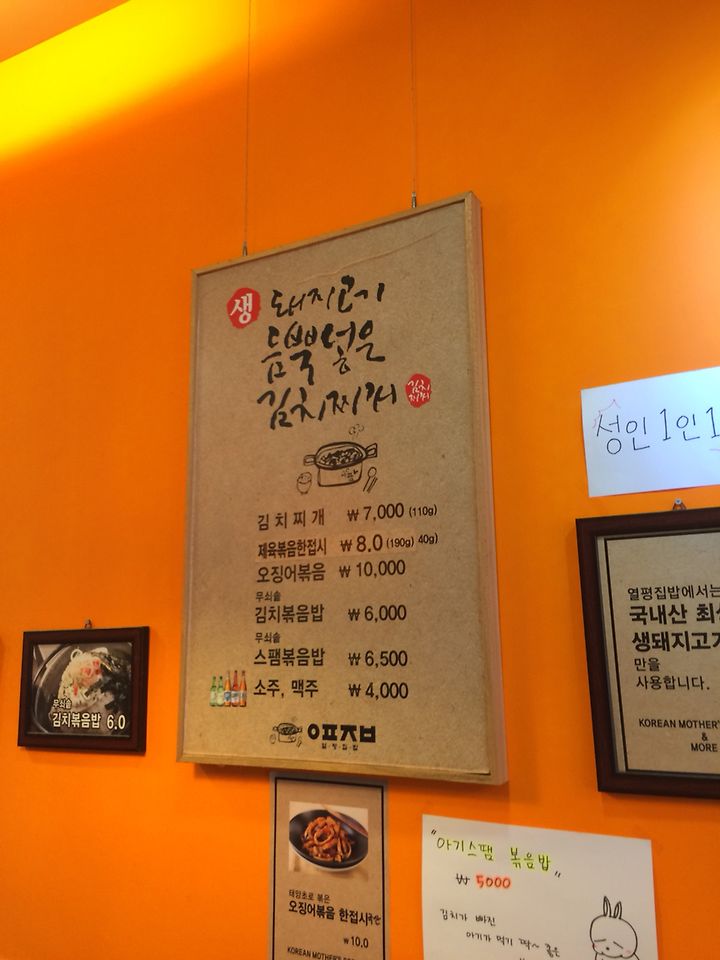 생 돼지고기
듬뿍넣은
김치찌개 김치찌개
김치찌개 ₩7,000 (110g)
제육볶음한접시 ₩8.0 (190g) 40g)
오징어볶음 ₩10,000
무쇠솥
김치볶음밥 ₩6,000
무쇠솥
스팸볶음밥 ₩6,500
소주, 맥주 ₩4,000
열평집밥
성인 1인 1
열평집밥에서는
국내산 최상
생돼지고기
만을
사용합니다.
KOREAN MOTHER'S
&
MORE
무쇠솥
김치볶음밥 6.0
태양초로 볶은
오징어볶음 한접시
₩10.0
KOREAN MOTHER'S
"아기스팸 볶음밥"
₩5000
김치가 빠진
아기가 먹기 딱~ 좋은